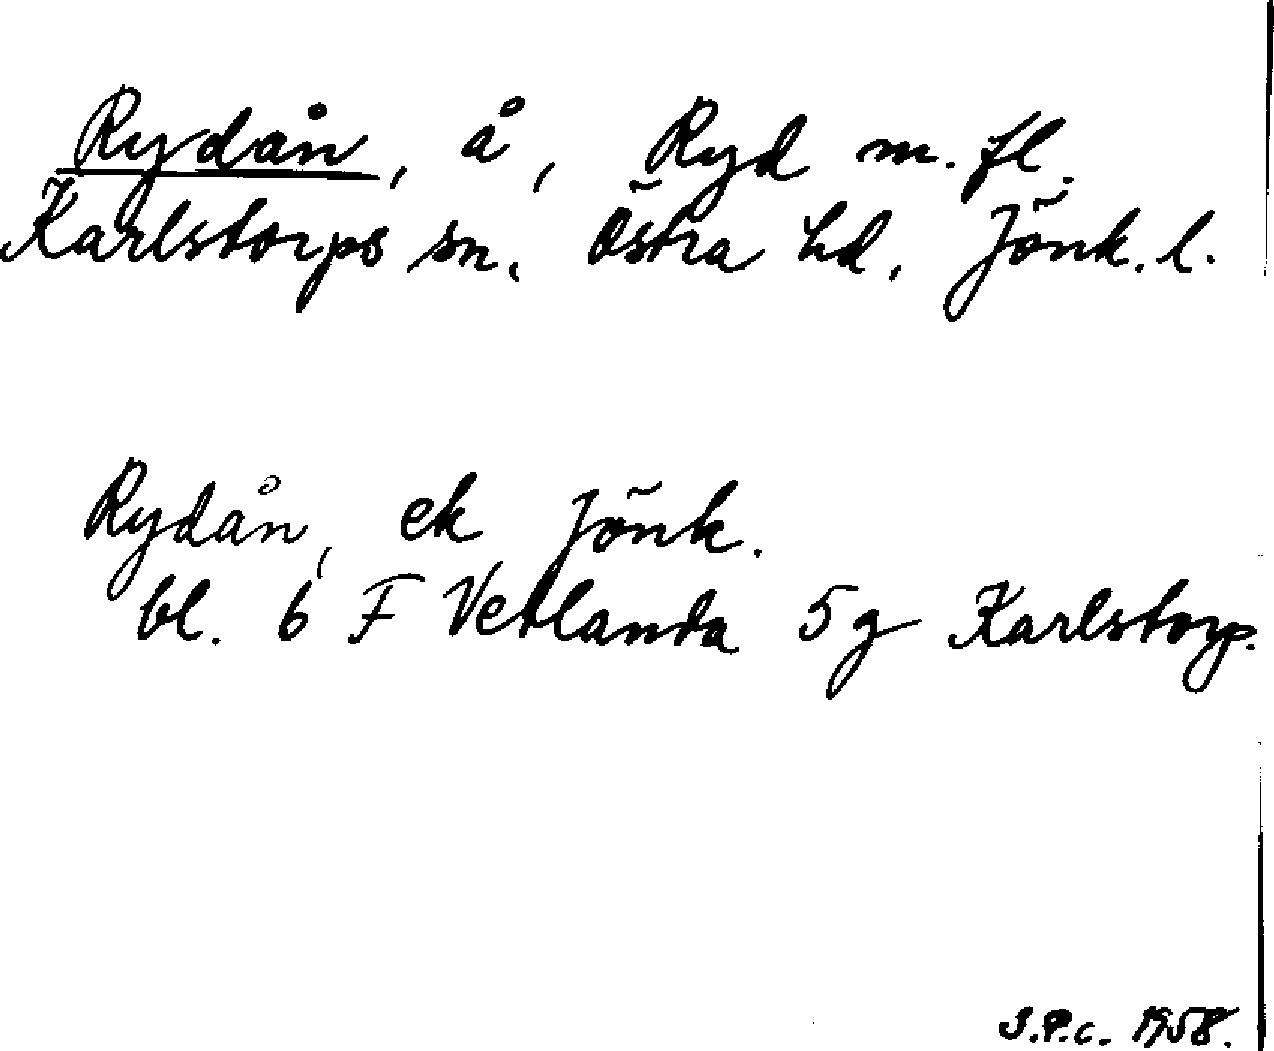 Rydån, å, Ryd m. fl.
Karlstorps sn, Östra hd, Jönk. l.
Rydån, ek Jönk.
bl. 6 F Vetlanda 5 g Karlstorp.
S.P.c. 1958.